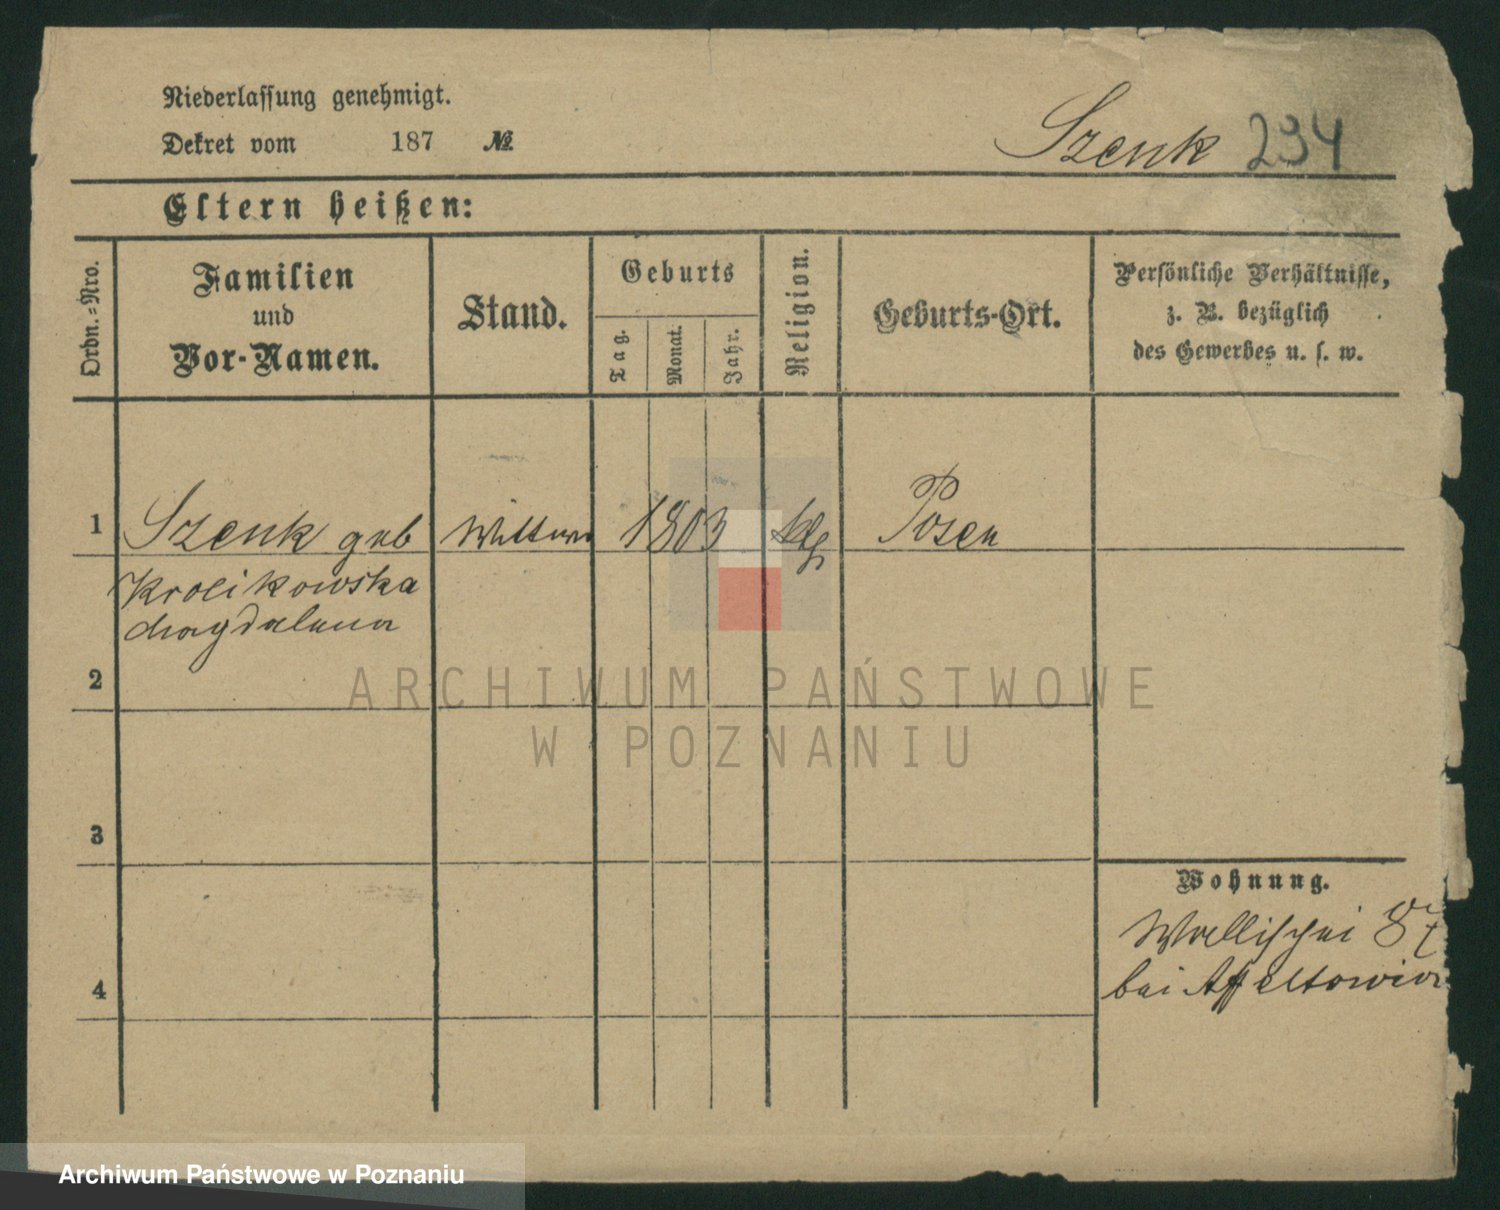 Niederlassung genehmigt.
Dekret vom 187 №
Szenk 294
Eltern heißen:
Ordn.-Nro.
Familien
und
Vor-Namen.
Stand.
Geburts
Tag.
Monat.
Jahr.
Religion.
Geburts-Ort.
Persönliche Verhältnisse,
z. B. bezüglich
des Gewerbes u. s. w.
1 Szenk geb Wittwe 1803 Posen
Krolikowska
Magdalena
2
ARCHIWUM PAŃSTWOWE
W POZNANIU
3
Wohnung.
Wallischei 87
bei
4
Archiwum Państwowe w Poznaniu